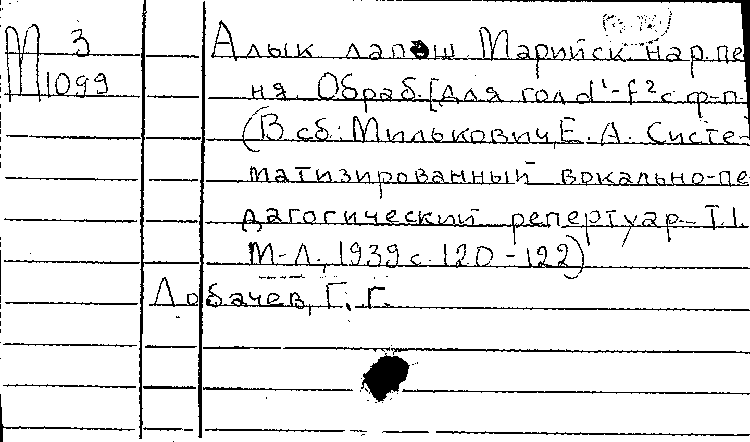 М 3
1099
Алык лапаш Марийск нар. пе
ня. Обраб. [для гол d¹-f² с ф-п.
(В сб: Милькович, Е. А. Систе-
матизированный вокально-пе
дагогический репертуар Т. I.
М-Л, 1939 с. 120-122)
Лобачев, Г. Г.